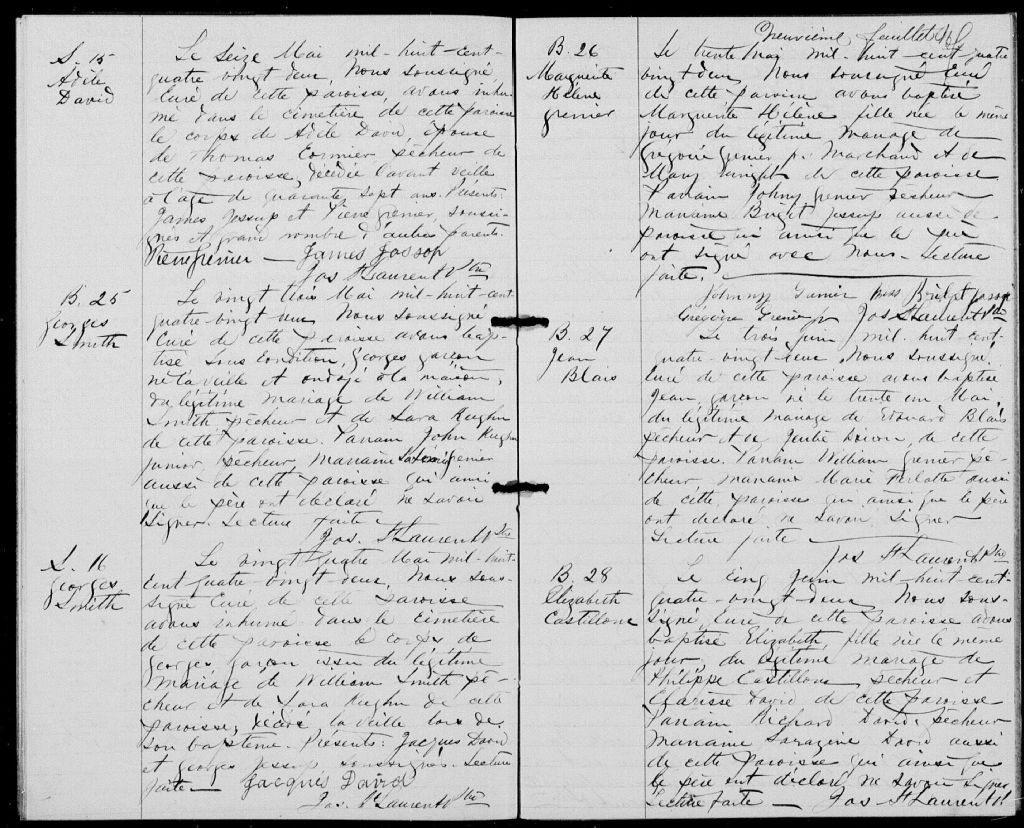 S. 15
Adèle
David
Le seize Mai mil-huit-cent-
quatre vingt deux, Nous soussigné
Curé de cette paroisse, avons inhu-
mé dans le cimetière de cette paroisse
le corps de Adèle David, épouse
de Thomas Cormier pêcheur de
cette paroisse, décédée l'avant veille
à l'age de quarante sept ans. Présents:
James Jessup et Pierre Grenier, soussi-
gnés et grand nombre d'autres parents.
Pierre Grenier — James Jossop
Jos St Laurent Ptre
B. 25
Georges
Smith
Le vingt trois Mai mil-huit-cent
quatre-vingt deux Nous soussigné
Curé de cette paroisse avons bap-
tisé sous condition, Georges garçon
né la veille et ondoyé à la maison,
du légitime mariage de William
Smith pêcheur et de Sara Kughn
de cette paroisse. Parrain John Kughn
junior, pêcheur, marraine Grenier
aussi de cette paroisse qui ainsi
que le père ont déclaré ne savoir
signer. Lecture faite —
Jos. St Laurent Ptre
S. 16
Georges
Smith
Le vingt quatre Mai mil-huit-
cent quatre-vingt deux, Nous sous-
signé Curé de cette paroisse
avons inhumé dans le cimetière
de cette paroisse le corps de
Georges, garçon issu du légitime
mariage de William Smith pê-
cheur et de Sara Kughn de cette
paroisse, décédé la veille lors de
son baptême. Présents: Jacques David
et Georges Jessup, soussignés. Lecture
faite — Jacques David
Jos. St Laurent Ptre
Neuvième feuillet
B. 26
Marguerite
Hélène
Grenier
Le trente Mai mil-huit cent quatre
vingt deux, Nous soussigné Curé
de cette paroisse avons baptisé
Marguerite Hélène fille née le même
jour du légitime mariage de
Grégoire Grenier jr. Marchand et de
Mary Wright de cette paroisse
Parrain Johny Grenier pêcheur
Marraine Briget Jessup aussi de
paroisse qui ainsi que le père
ont signé avec Nous. Lecture
faite.
Johnny Grenier Miss Bridget Jossop
Gregoire Grenier jr Jos St Laurent Ptre
B. 27
Jean
Blais
Le trois juin mil-huit-cent-
quatre-vingt-deux, Nous soussigné,
Curé de cette paroisse avons baptisé
Jean, garçon né le trente un Mai,
du légitime mariage de Edouard Blais
pêcheur et de David, de cette
paroisse. Parrain William Grenier pê-
cheur, marraine Marie aussi
de cette paroisse qui ainsi que le père
ont déclaré ne savoir signer
Lecture faite —
Jos St Laurent Ptre
B. 28
Elizabeth
Castillone
Le cinq juin mil-huit-cent-
quatre-vingt-deux Nous sous-
signé, Curé de cette paroisse avons
baptisé Elizabeth, fille née le même
jour, du légitime mariage de
Philippe Castillone, pêcheur et
Clarisse David de cette paroisse
Parrain Richard David, pêcheur
Marraine David aussi
de cette paroisse qui ainsi que
le père ont déclaré ne savoir signer
Lecture faite — Jos St Laurent